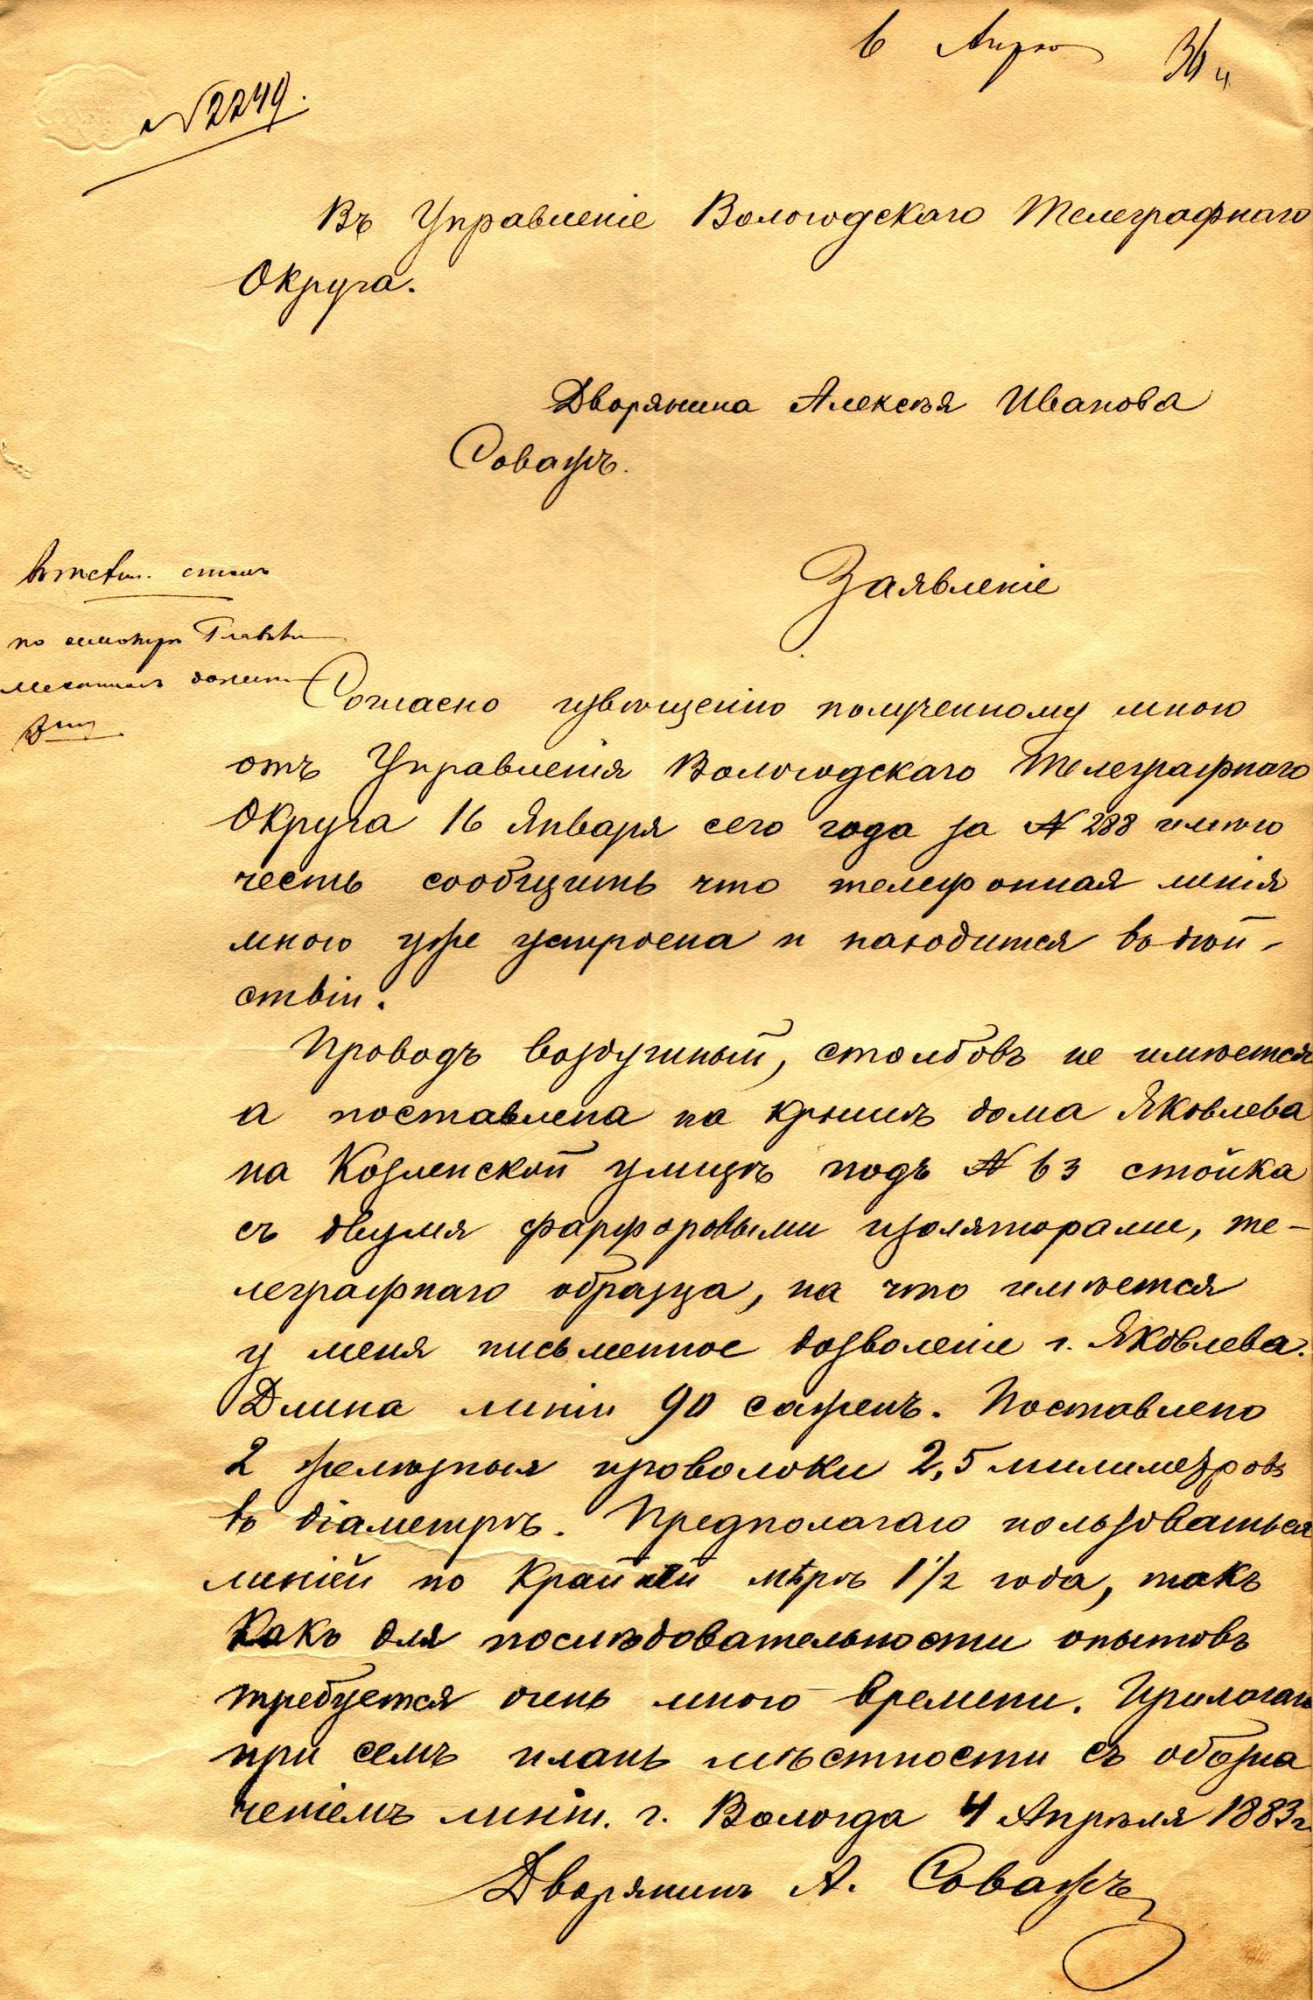 6 Апр
№ 2249.
Въ Управленіе Вологодскаго Телеграфнаго
Округа.
Дворянина Алексѣя Иванова
Соважъ.
Заявленіе
по осмотру
Согласно извѣщенію полученному мною
отъ Управленія Вологодскаго Телеграфнаго
Округа 16 Января сего года за № 288 имѣю
честь сообщить что телефонная линія
мною уже устроена и находится въ дѣй-
ствіи.
Проводъ воздушный, столбовъ не имѣется
а поставлена на крышѣ дома Яковлева
на Козленской улицѣ подъ № 63 стойка
съ двумя фарфоровыми изоляторами, те-
леграфнаго образца, на что имѣется
у меня письменное дозволеніе г. Яковлева.
Длина линіи 90 саженъ. Поставлено
2 желѣзныя проволоки 2,5 милиметровъ
въ діаметрѣ. Предполагаю пользоваться
линіей по крайней мѣрѣ 1 1/2 года, такъ
какъ для послѣдовательности опытовъ
требуется очень много времени. Прилагаю
при семъ планъ мѣстности съ обозна
ченіемъ линіи. г. Вологда 4 Апрѣля 1883 г.
Дворянинъ А. Соважъ